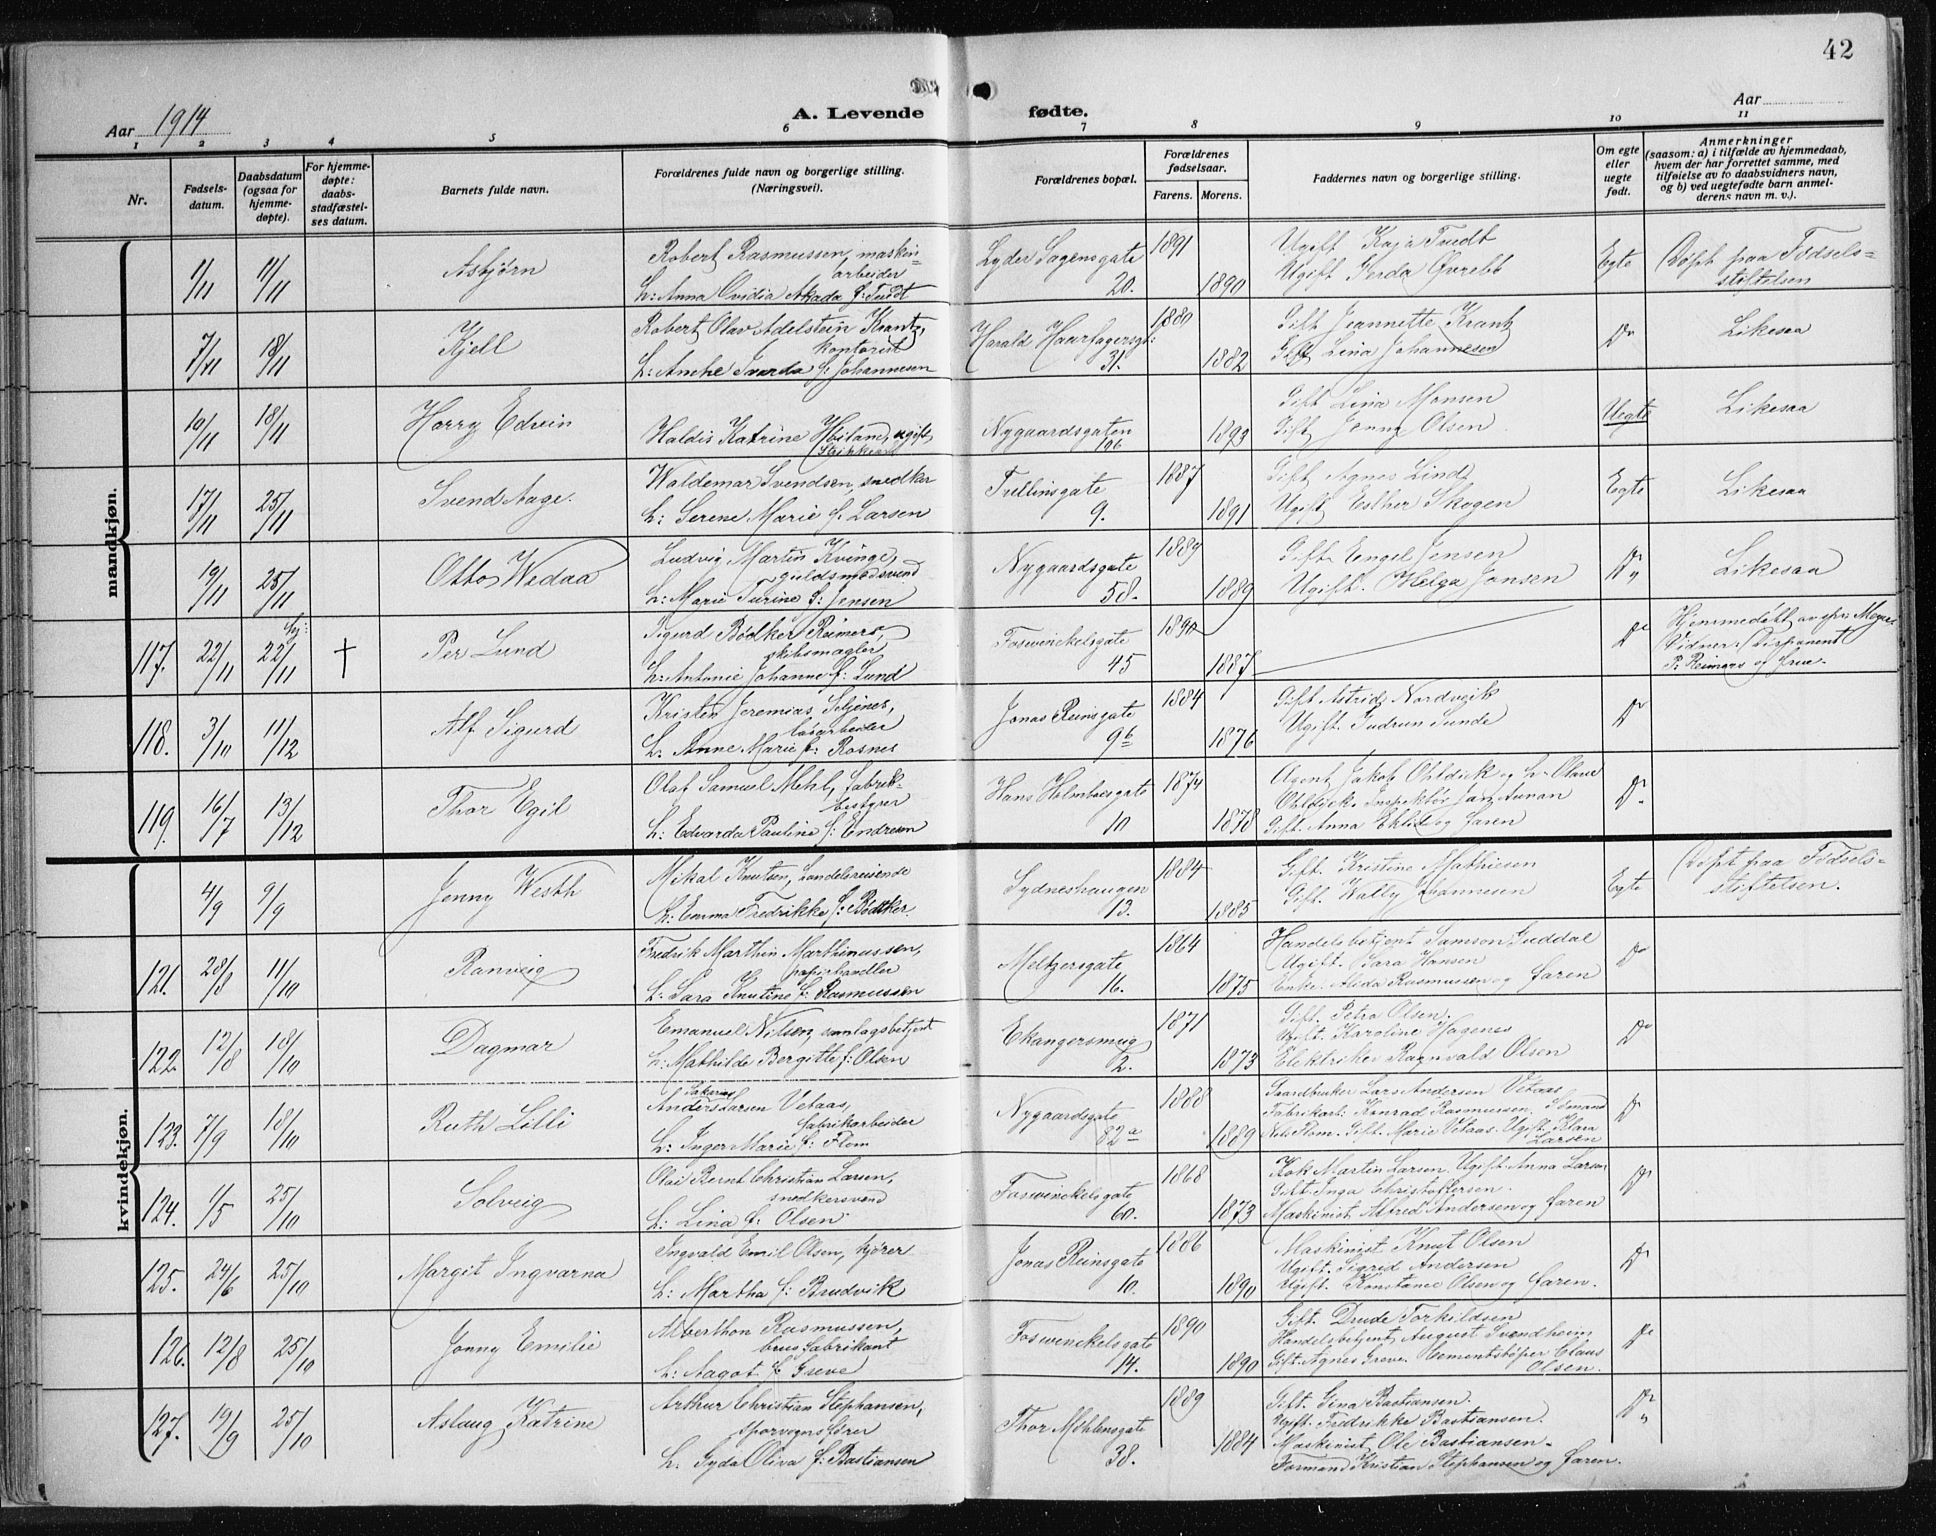 42
Aar 1914
A. Levende fødte.
Aar
1 2 3 4 5 6 7 8 9 10 11
Nr.
Fødsels-
datum.
Daabsdatum
(ogsaa for
hjemme-
døpte).
For hjemme-
døpte:
daabs-
stadfæstel-
ses datum.
Barnets fulde navn.
Forældrenes fulde navn og borgerlige stilling.
(Næringsvei).
Forældrenes bopæl.
Forældrenes
fødselsaar.
Farens. Morens.
Faddernes navn og borgerlige stilling.
Om egte
eller
uegte
født.
Anmerkninger
(saasom: a) i tilfælde av hjemmedaab,
hvem der har forrettet samme, med
tilføielse av to daabsvidners navn,
og b) ved uegtefødte barn anmel-
derens navn m. v.).
mandkjøn.
1/11 11/11 Asbjørn
Robert Rasmussen, maskin-
arbeider
h: Anna Ovidia Akada f: Tvedt
Lyder Sagensgate
20.
1891 1890
Ugift Kaja Tvedt
Ugift Gerda Øvrebt
Egte
Døpt paa Fødsels-
stiftelsen
7/11 18/11 Kjell
Robert Olav Adelstein Krantz,
kontorist
h: Anche f: Johannesen
Harald Haarfagersgt:
31.
1880 1882
Gift Jeannette Krantz
Gift Lina Johannesen
Do
Likesaa
10/11 18/11 Harry Edvin
Haldis Katrine Høiland, ugift
Nygaardsgaten
96
1893
Gift Lina Monsen
Gift Jenny Olsen
Uegte
Likesaa
17/11 25/11 Svend Aage.
Waldemar Svendsen, snedker
h: Serene Marie f. Larsen
9.
1887 1891
Gift Agnes Lind
Ugift Esther Skogen
Egte
Likesaa
19/11 25/11 Otto Wedaa
Ludvig Martin Kvinge,
guldsmedsvend
h: Marie Turine f: Jensen
Nygaardsgate
58.
1889 1889
Gift Engel Jensen
Ugift. Helga Jansen
Do
Likesaa
117. 22/11 22/11 † Per Lund
Sigurd Bødker Reimers,
skibsmægler
h: Antonie Johanne f: Lund
Foswinckelsgate
45
1890 1887
Do
Hjemmedøbt av
Vidner: Disponent
P. Reimers og frue.
118. 3/10 11/12 Alf Sigurd
Kristen Jeremias Seljenes,
løsarbeider
h. Anne Marie f: Rosnes
Jonas Reinsgate
9b
1884 1876
Gift Astrid Nordveik
Ugift. Gudrun Sunde
Do
119. 16/7 13/12 Thor Egil
Olaf Samuel Mehl, fabrik-
bestyrer
h: Edvarda Pauline f: Endresen
Hans Holmboesgate
10
1874 1878
Agent Jakob Ohldick og h. Olave
Ohldick. Inspektør Jan Aunan
Gift. Anna Eklid og faren
Do
kvindekjøn.
4/9 9/9 Jenny Westh
Mikal Knutsen, handelsreisende
h: Emma Fredrikke f: Bødtker
Sydneshaugen
13.
1884 1885
Gift. Kristine Mathiesen
Gift. Wally Hannesen
Egte
Døpt paa Fødsels-
stiftelsen.
121. 28/8 11/10 Ranveig
Fredrik Marthin Marthinussen,
papirhandler
h: Sara Knutine f: Rasmussen
Meltzersgate
16.
1864 1875
Handelsbetjent Samson Guddal
Ugift. Sara Hansen
Enke. Alida Rasmussen og faren
Do
122. 12/8 18/10 Dagmar
Emanuel Nilsen, samlagsbetjent
h: Mathilde Bergitte f: Olsen
Ekangersmug
2.
1871 1873
Gift. Petra Olsen.
Ugift. Karoline Hagenes
Elektriker Ragnvald Olsen
Do
123. 7/9 18/10 Ruth Lilli
Sakarias
Anders Larsen Vetaas,
fabrikarbeider
h: Inger Marie f: Flom
Nygaardsgate
82a
1888 1889
Gaardbruker Lars Andersen Vetaas
Fabrikarb. Konrad Rasmussen. Sømand
Nels Flom. Gift. Marie Vetaas. Ugift. Klara
Larsen
Do
124. 1/5 25/10 Solveig
Olai Bernt Christian Larsen,
snedkersvend
h: Lina f: Olsen
Foswinckelsgate
60.
1868 1873
Kok Martin Larsen. Ugift. Anna Larsen
Gift. Inga Christoffersen.
Maskinist Alfred Andersen og faren
Do
125. 24/6 25/10 Margit Ingvarna
Ingvald Emil Olsen, kjører
h: Martha f: Brudvik
Jonas Reinsgate
10.
1886 1890
Maskinist Knut Olsen
Ugift. Sigrid Andersen
Ugift. Konstance Olsen og faren.
Do
126. 12/8 25/10 Jonny Emilie
Alberthon Rasmussen,
brusfabrikant
h: Aagot f: Greve
Foswinckelsgate
14.
1890 1890
Gift. Drude Torkildsen
Handelsbetjent August Svendheim
Gift. Agnes Greve. Cementstøper Claus
Olsen.
Do
127. 19/9 25/10 Aslaug Katrine
Arthur Christian Stephansen,
sporvognsfører
h. Gyda Oliva f: Bastiansen
Thor Møhlensgate
38.
1889 1884
Gift. Gina Bastiansen.
Ugift. Fredrikke Bastiansen.
Maskinist Ole Bastiansen.
Formand Kristian Stephansen og faren.
Do